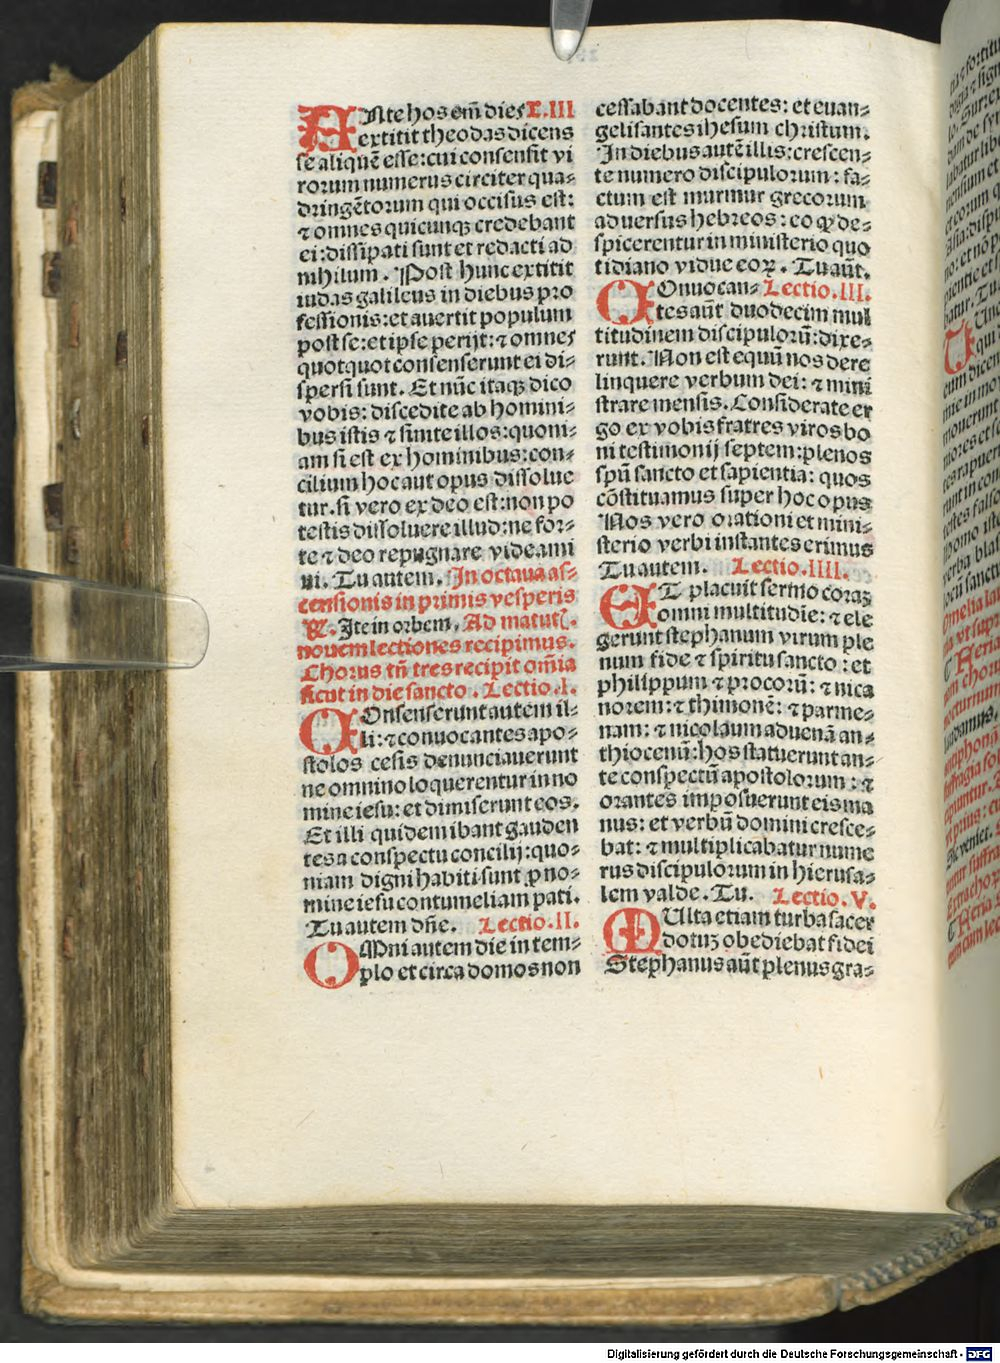 ANte hos em̄ dies L.III
extitit theodas dicens
se aliquē esse: cui consensit vi
rorum numerus circiter qua-
dringētorum qui occisus est:
⁊ omnes quicunqꝫ credebant
ei: dissipati sunt et redacti ad
nihilum. Post hunc extitit
iudas galileus in diebus pro
fessionis: et auertit populum
post se: et ipse perijt: ⁊ omnes
quotquot consenserunt ei di-
spersi sunt. Et nūc itaqꝫ dico
vobis: discedite ab homini-
bus istis ⁊ sinite illos: quoni-
am si est ex hominibus: con-
cilium hoc aut opus dissolue
tur. si vero ex deo est: non po
testis dissoluere illud: ne for-
te ⁊ deo repugnare videami
ni. Tu autem. In octaua as-
censionis in primis vesperis
℟. Ite in orbem. Ad matut̄.
nouem lectiones recipimus.
Chorus tn̄ tres recipit om̄ia
sicut in die sancto. Lectio.I.
COnsenserunt autem il-
li: ⁊ conuocantes apo-
stolos cesis denunciauerunt
ne omnino loquerentur in no
mine iesu: et dimiserunt eos.
Et illi quidem ibant gauden
tes a conspectu concilij: quo-
niam digni habiti sunt ꝓ no-
mine iesu contumeliam pati.
Tu autem dn̄e. Lectio.II.
OMni autem die in tem-
plo et circa domos non
cessabant docentes: et euan-
gelisantes ihesum christum.
In diebus autē illis: crescen-
te numero discipulorum: fa-
ctum est murmur grecorum
aduersus hebreos: eo ꝙ de-
spicerentur in ministerio quo
tidiano vidue eoꝝ. Tu aūt.
COnuocan- Lectio.III.
tes aūt duodecim mul
titudinem discipulorū: dixe-
runt. Non est equū nos dere
linquere verbum dei: ⁊ mini
strare mensis. Considerate er
go ex vobis fratres viros bo
ni testimonij septem: plenos
spū sancto et sapientia: quos
cōstituamus super hoc opus
Nos vero orationi et mini-
sterio verbi instantes erimus
Tu autem. Lectio.IIII.
ET placuit sermo coraꝫ
omni multitudīe: ⁊ ele
gerunt stephanum virum ple
num fide ⁊ spiritu sancto: et
philippum ⁊ procorū: ⁊ nica
norem: ⁊ thimonē: ⁊ parme-
nam: ⁊ nicolaum aduenā an-
thiocenū: hos statuerunt an-
te conspectū apostolorum: ⁊
orantes imposuerunt eis ma
nus: et verbū domini cresce-
bat: ⁊ multiplicabatur nume
rus discipulorum in hierusa-
lem valde. Tu. Lectio.V.
MUlta etiam turba sacer
dotuꝫ obediebat fidei
Stephanus aūt plenus gra-
Digitalisierung gefördert durch die Deutsche Forschungsgemeinschaft - DFG